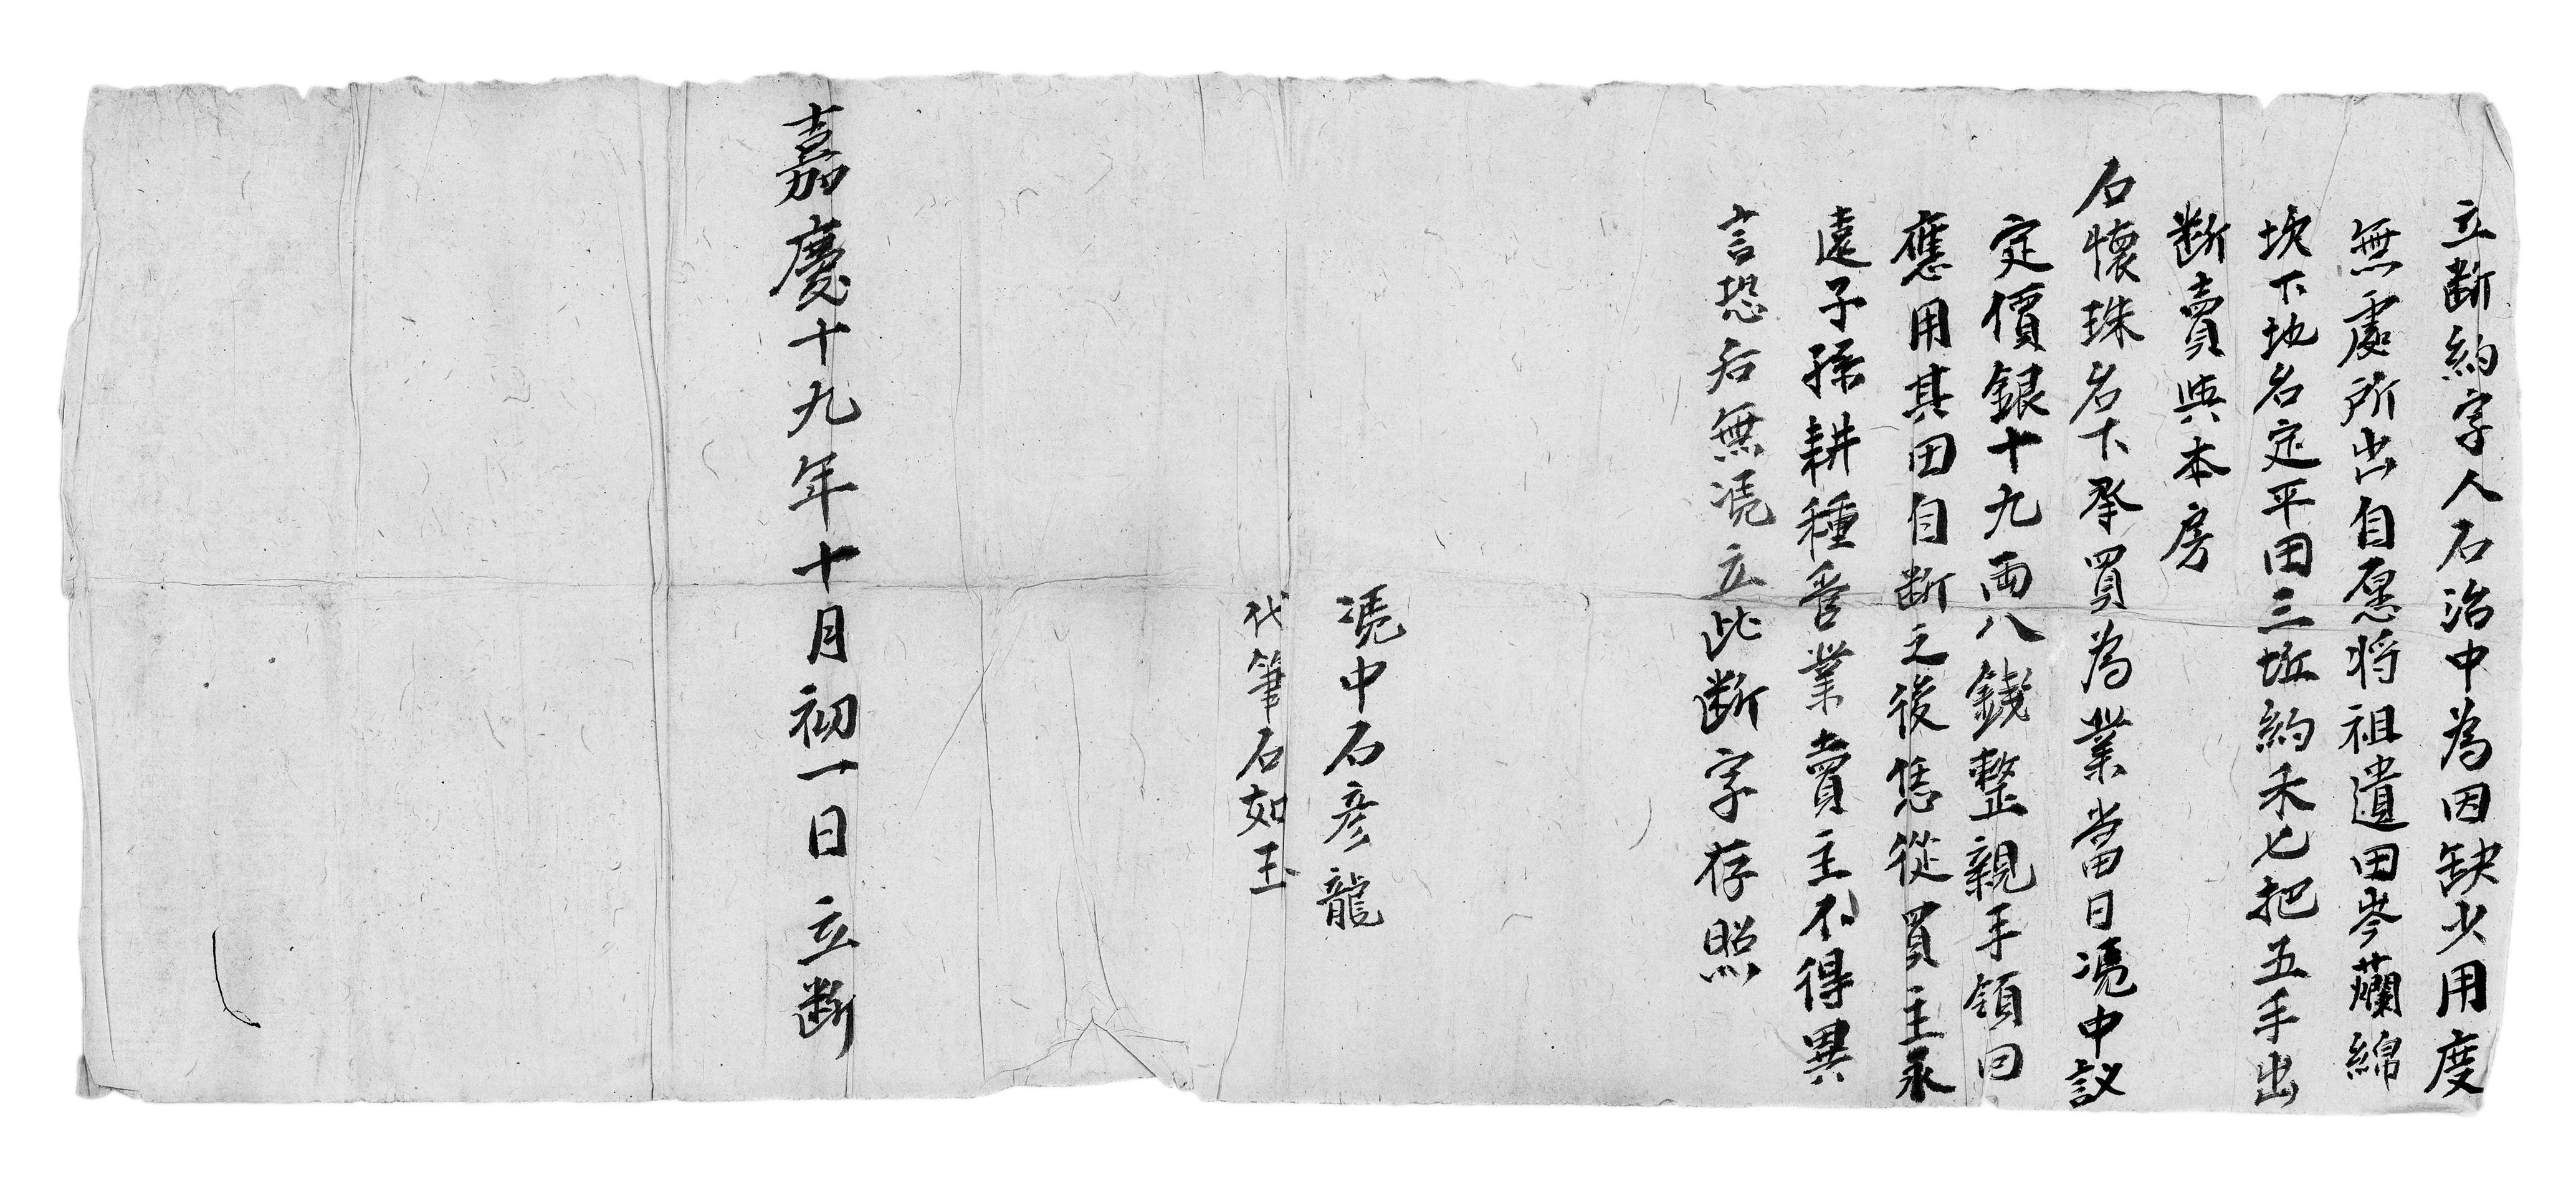 立断約字人石治中為因缺少用度
無處所出自愿将祖遺田岑蘭綿
坎下地名定平田三坵約禾七把五手出
断賣與本房
石懷珠名下承買為業當日凴中議
定價銀十九両八錢整親手領囬
應用其田自断之後恁從買主永
遠子孫耕種管業賣主不得異
言恐后無凴立此断字存照
凴中石彦龍
代筆石如玉
嘉慶十九年十月初一日立断